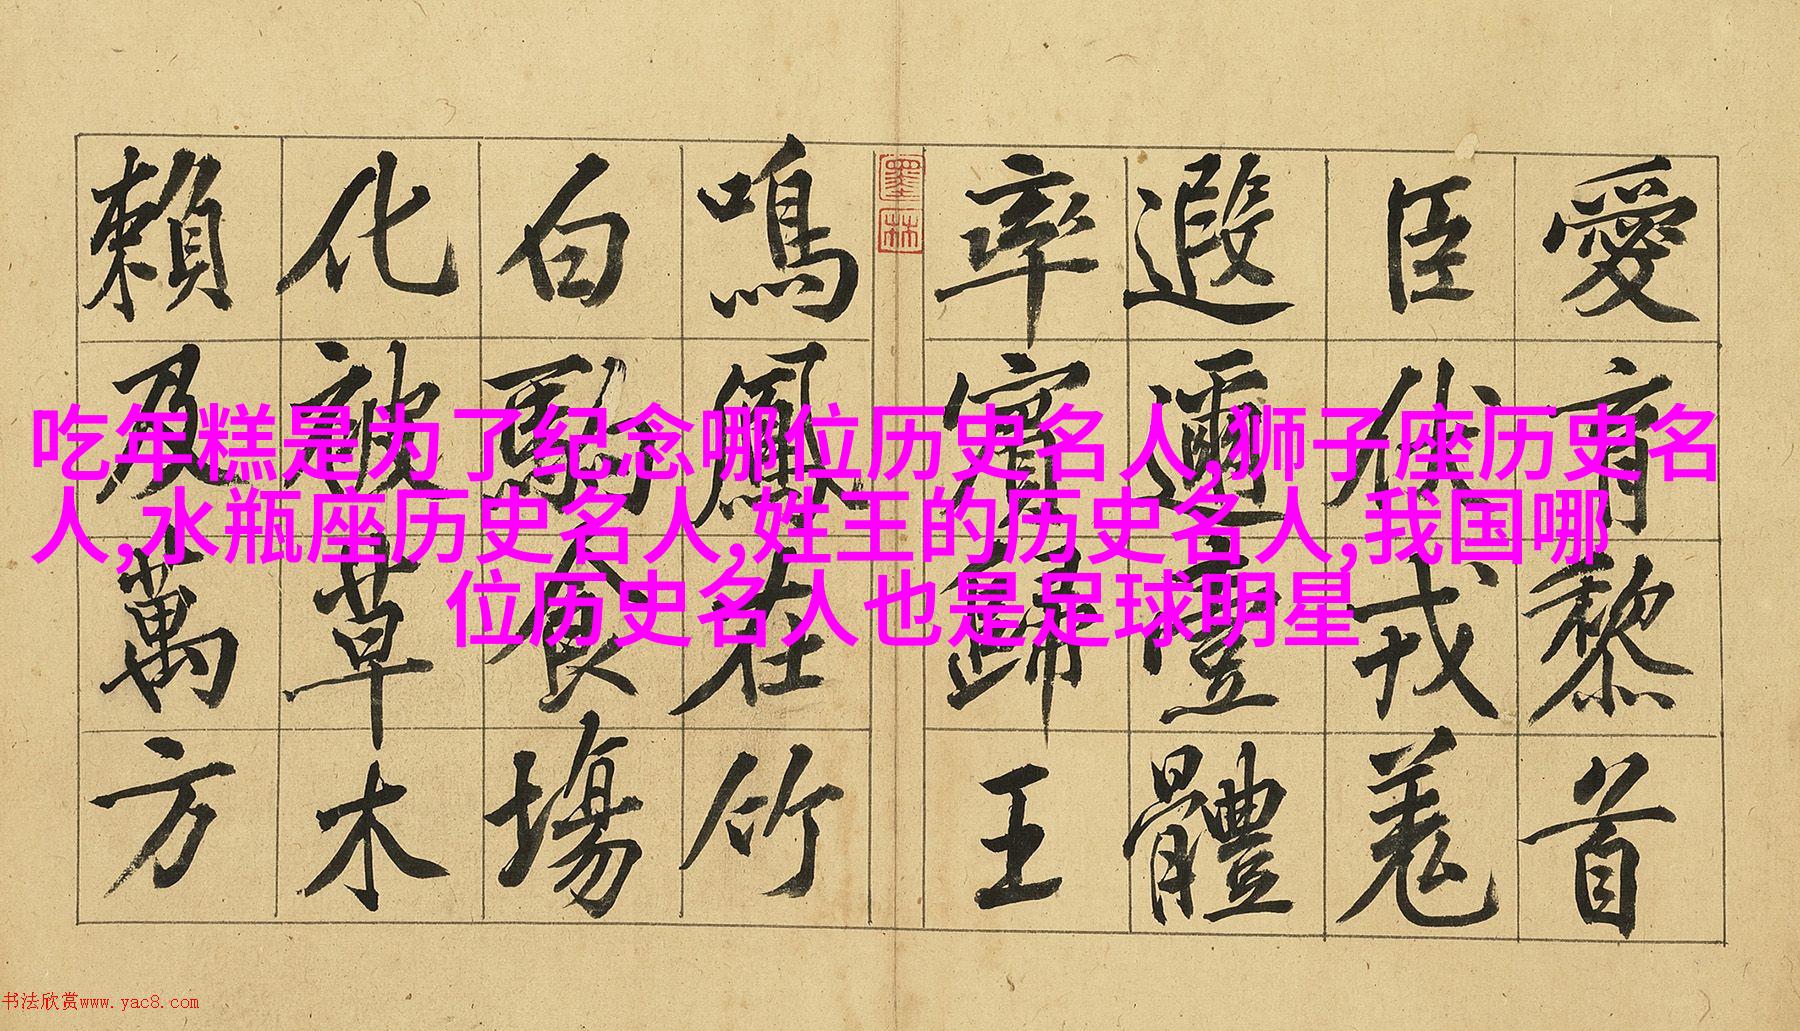 愛育黎首
臣伏戎羌
遐邇壹體
率賓歸王
墨林
鳴鳳在竹
白駒食場
化被草木
賴及萬方
吃年糕是为了纪念哪位历史名人,狮子座历史名
人,水瓶座历史名人,姓王的历史名人,我国哪
位历史名人也是足球明星
书法欣赏www.yac8.com